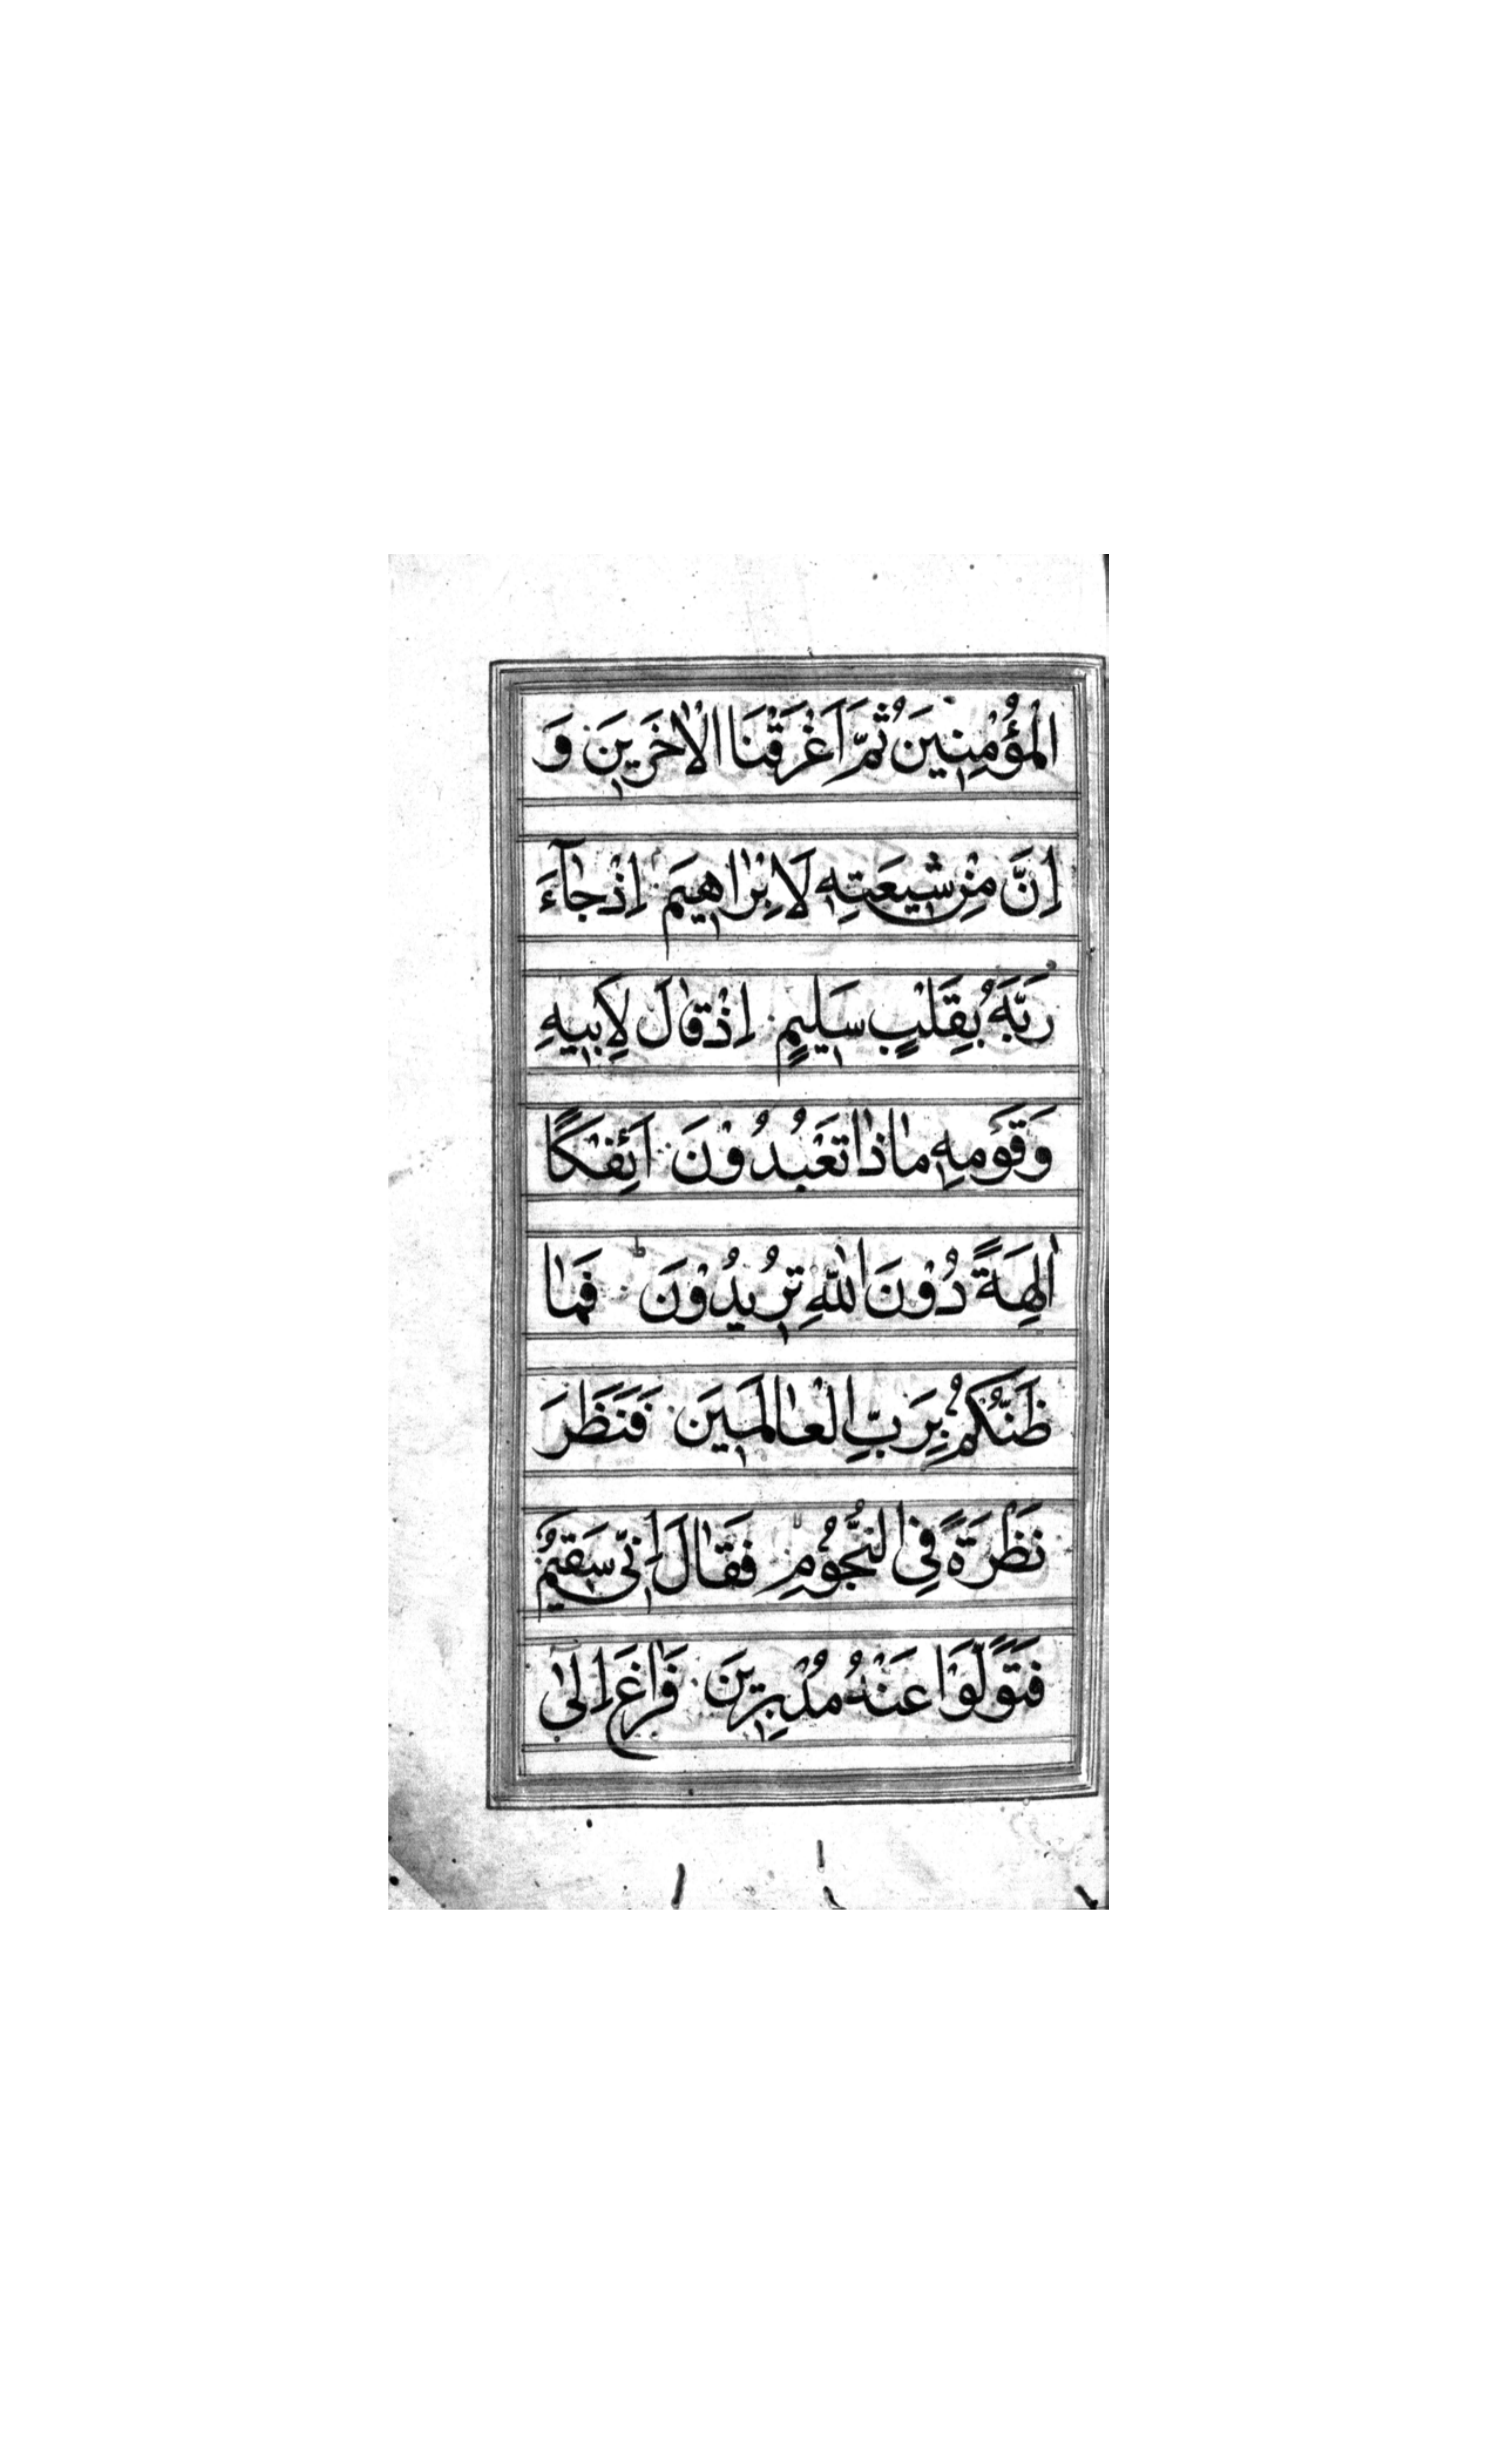 الْمُؤْمِنِينَ ثُمَّ اَغْرَقْنَا الْاٰخَرِينَ وَ
اِنَّ مِنْ شِيعَتِهٖ لَاِبْرٰاهِيمَ اِذْ جٰاۤءَ
رَبَّهُ بِقَلْبٍ سَلِيمٍ اِذْ قٰالَ لِاَبِيهِ
وَقَوْمِهٖ مٰاذٰا تَعْبُدُوْنَ اَئِفْكًا
اٰلِهَةً دُوْنَ اللّٰهِ تُرِيدُوْنَ ط فَمٰا
ظَنُّكُمْ بِرَبِّ الْعٰالَمِينَ فَنَظَرَ
نَظْرَةً فِى النُّجُوْمِ فَقٰالَ اِنِّى سَقِيمٌ
فَتَوَلَّوْا عَنْهُ مُدْبِرِينَ فَرٰاغَ اِلٰىۤ